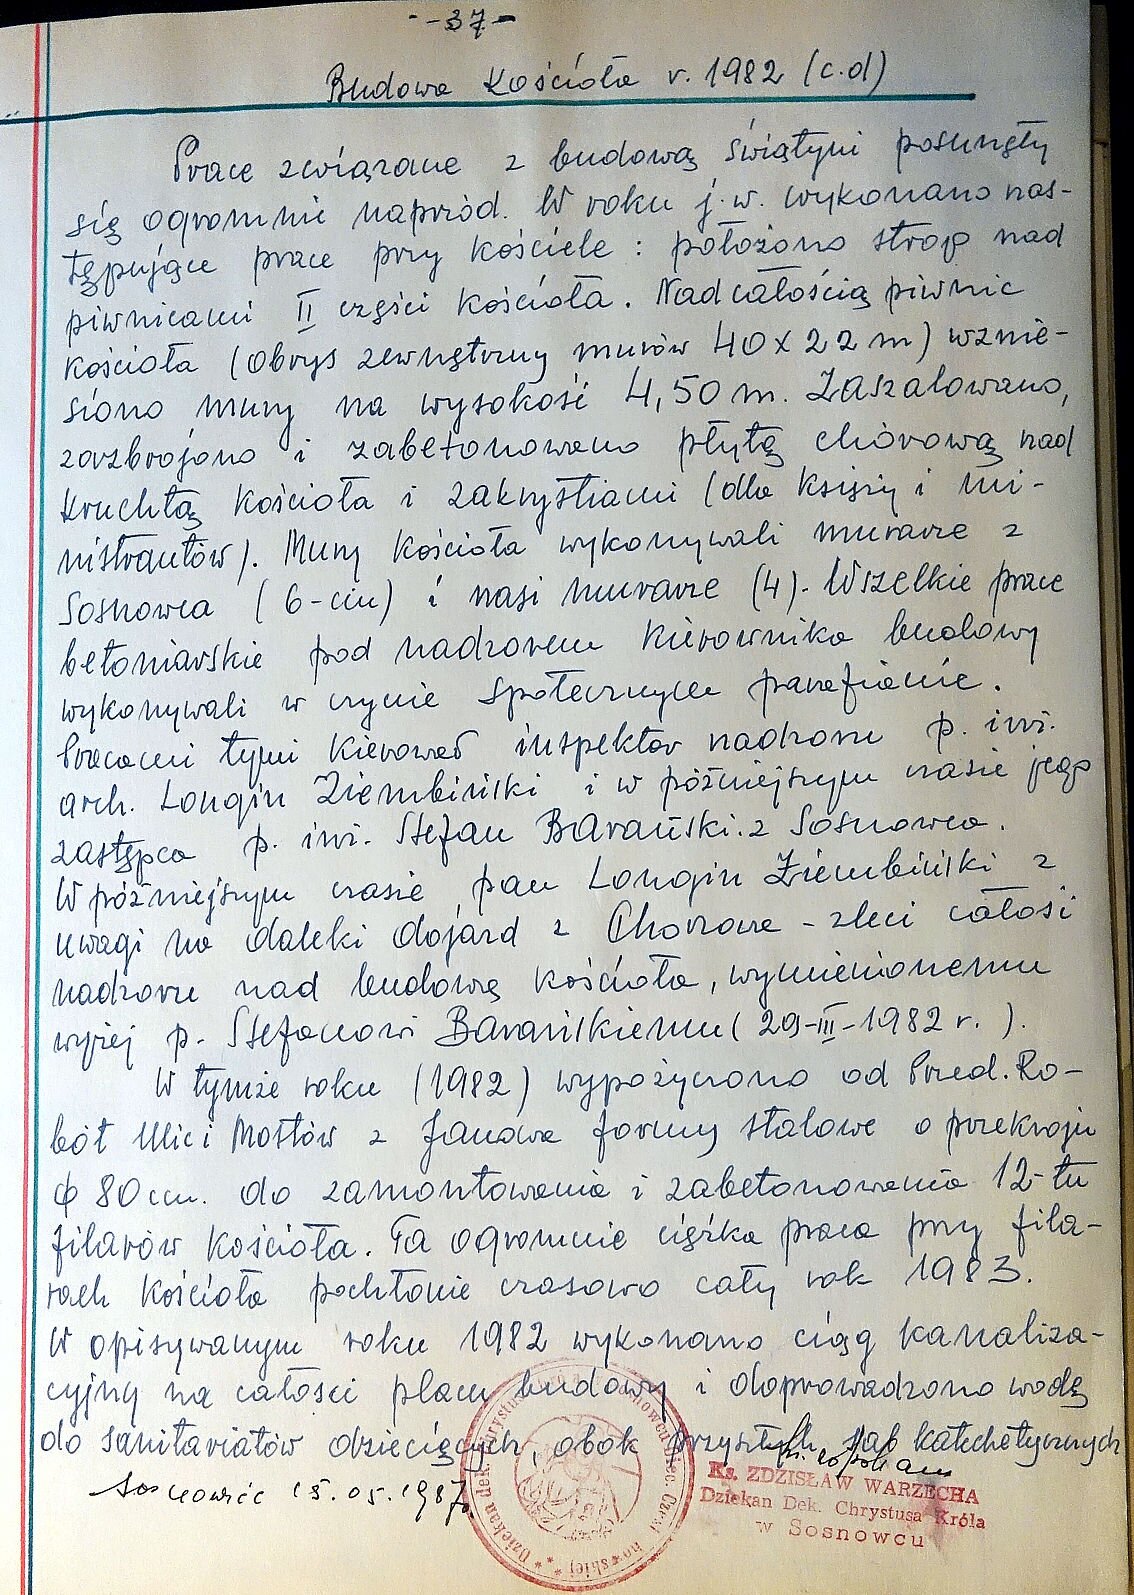 - -37-
Budowa Kościoła r. 1982 (c.d)
Prace związane z budową świątyni posunęły
się ogromnie naprzód. W roku j.w. wykonano nas-
tępujące prace przy kościele : położono strop nad
piwnicami II części kościoła. Nad całością piwnic
kościoła (obrys zewnętrzny murów 40 x 22 m) wznie-
siono mury na wysokość 4,50 m. Zaszalowano,
zozbrojono i zabetonowano płytę chórową nad
kruchtą kościoła i zakrystiami (dla księży i mi-
nistrantów). Mury kościoła wykonywali murarze z
Sosnowca (6-ciu) i nasi murarze (4). Wszelkie prace
betoniarskie pod nadzorem kierownika budowy
wykonywali w czynie społecznym parafianie.
Pracami tymi kierował inspektor nadzoru p. inż.
arch. Longin Ziembiński i w późniejszym czasie jego
zastępca p. inż. Stefan Barański. z Sosnowca.
W późniejszym czasie pan Longin Ziembiński z
uwagi na daleki dojazd z Chorzowa - zleci całość
nadzoru nad budową kościoła, wymienionemu
wyżej p. Stefanowi Barańskiemu (29-III-1982 r. ).
W tymże roku (1982) wypożyczono od Przed. Ro-
bót Ulic i Mostów z Janowa formy stalowe o przekroju
ϕ 80 cm. do zamontowania i zabetonowania 12-tu
filarów kościoła. Ta ogromnie ciężka praca przy fila-
rach kościoła pochłonie czasowo cały rok 1983.
W opisywanym roku 1982 wykonano ciąg kanaliza-
cyjny na całości placu budowy i doprowadzono wodę
do sanitariatów dziecięcych, obok przyszłych sal katechetycznych
Sosnowiec 15.05.1987r.
Ks. ZDZISŁAW WARZECHA
Dziekan Dek. Chrystusa Króla
w Sosnowcu